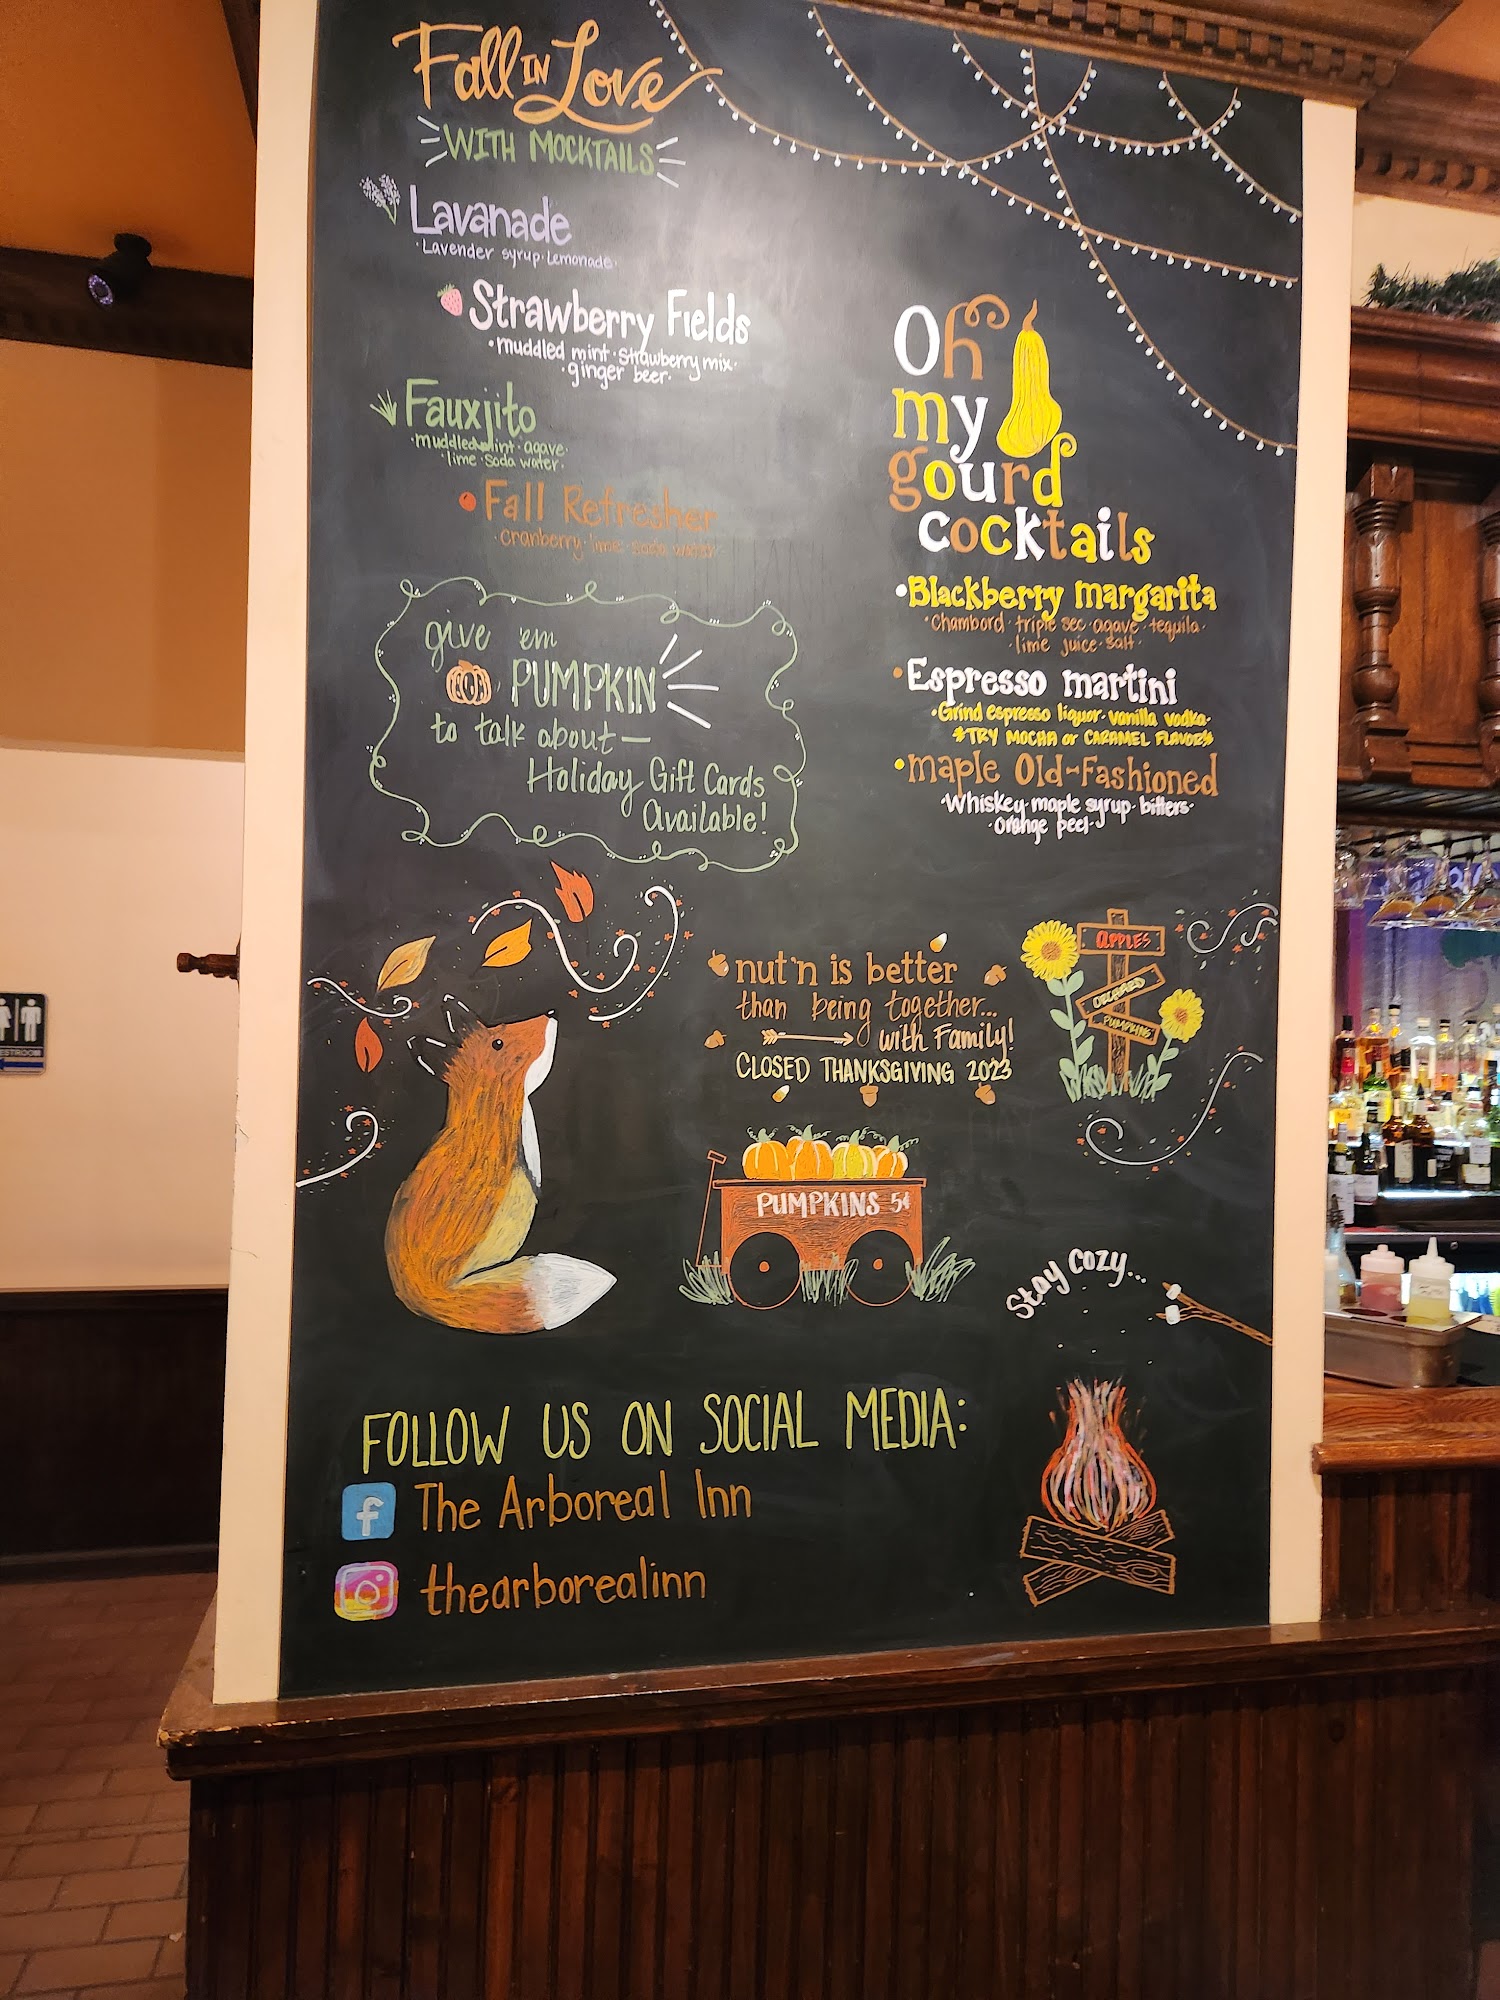 Fall IN Love
WITH MOCKTAILS
Lavanade
·Lavender syrup·Lemonade·
Strawberry Fields
·muddled mint·strawberry mix·
·ginger beer·
Fauxjito
·muddled mint·agave·
·lime·soda water·
Fall Refresher
·cranberry·lime·soda water·
give 'em
PUMPKIN
to talk about—
Holiday Gift Cards
Available!
Oh
my
gourd
cocktails
•Blackberry margarita
·Chambord·triple sec·agave·tequila·
·lime juice·salt·
•Espresso martini
·Grind espresso liquor·vanilla vodka·
*TRY MOCHA or CARAMEL FLAVORS*
•maple Old-Fashioned
·Whiskey·maple syrup·bitters·
·orange peel·
nut'n is better
than being together...
with Family!
CLOSED THANKSGIVING 2023
APPLES
ORCHARD
PUMPKINS
PUMPKINS 5¢
Stay cozy...
FOLLOW US ON SOCIAL MEDIA:
f The Arboreal Inn
thearborealinn
RESTROOM